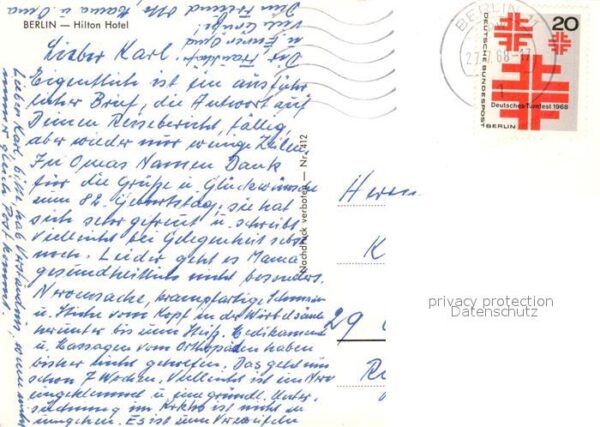 BERLIN — Hilton Hotel
Lieber Karl.
Eigentlich ist ein ausführ
licher Brief, die Antwort auf
Deinen Reisebericht, fällig,
aber wieder nur wenige Zeilen.
In Omas Namen Dank
für die Grüße u. Glückwünsche
zum 82. Geburtstag, sie hat
sich sehr gefreut u. schreibt
vielleicht bei Gelegenheit selbst
noch. Leider geht es Mama
gesundheitlich nicht besonders.
Nervensache, krampfartige Schmerzen
u. Stiche vom Kopf in der Wirbelsäule
herunter bis zum Steiß. Medikamente
u. Massagen vom Orthopäden haben
bisher nicht geholfen. Das geht nun
schon 7 Wochen. Vielleicht ist ein Nerv
eingeklemmt u. eine gründl. Unter-
suchung im Krhs ist nicht zu
umgehen. Es ist zum Verzweifeln
Lieber Karl, bitte hab Verständnis, wenn nicht
immer gleich Post kommt.
Viele Grüße!
Dein Otto, Mama u. Oma
Nachdruck verboten — Nr. 412
Herrn
K
29
R
BERLIN 11
68-17
1
20
DEUTSCHE BUNDESPOST
BERLIN
Deutsches Turnfest 1968
privacy protection
Datenschutz